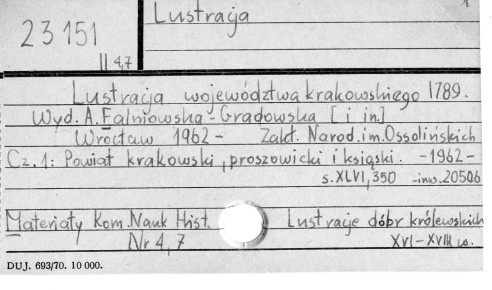 Lustracja 1
23151
II 4,7
Lustracja województwa krakowskiego 1789.
Wyd. A. Falniowska-Gradowska [i in.]
Wrocław 1962- Zakł. Narod. im. Ossolińskich
Cz. 1: Powiat krakowski, proszowicki i ksiąski. -1962-
s. XLVI, 350 -inw. 20506
Materiały Kom. Nauk Hist. Lustracje dóbr królewskich
Nr 4, 7 XVI-XVIII w.
DUJ. 693/70. 10 000.